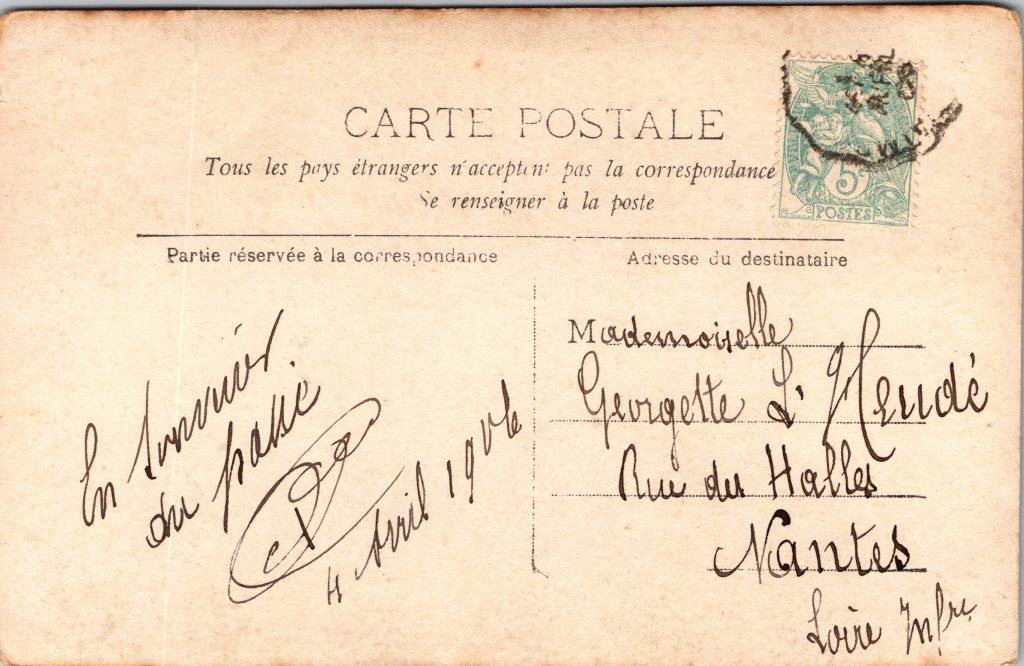 CARTE POSTALE
Tous les pays étrangers n'acceptent pas la correspondance
Se renseigner à la poste
5c
POSTES
Partie réservée à la correspondance
Adresse du destinataire
En souvenir
du passé
4 Avril 1906
Mademoiselle
Georgette L'Heudé
Rue des Halles
Nantes
Loire Infre